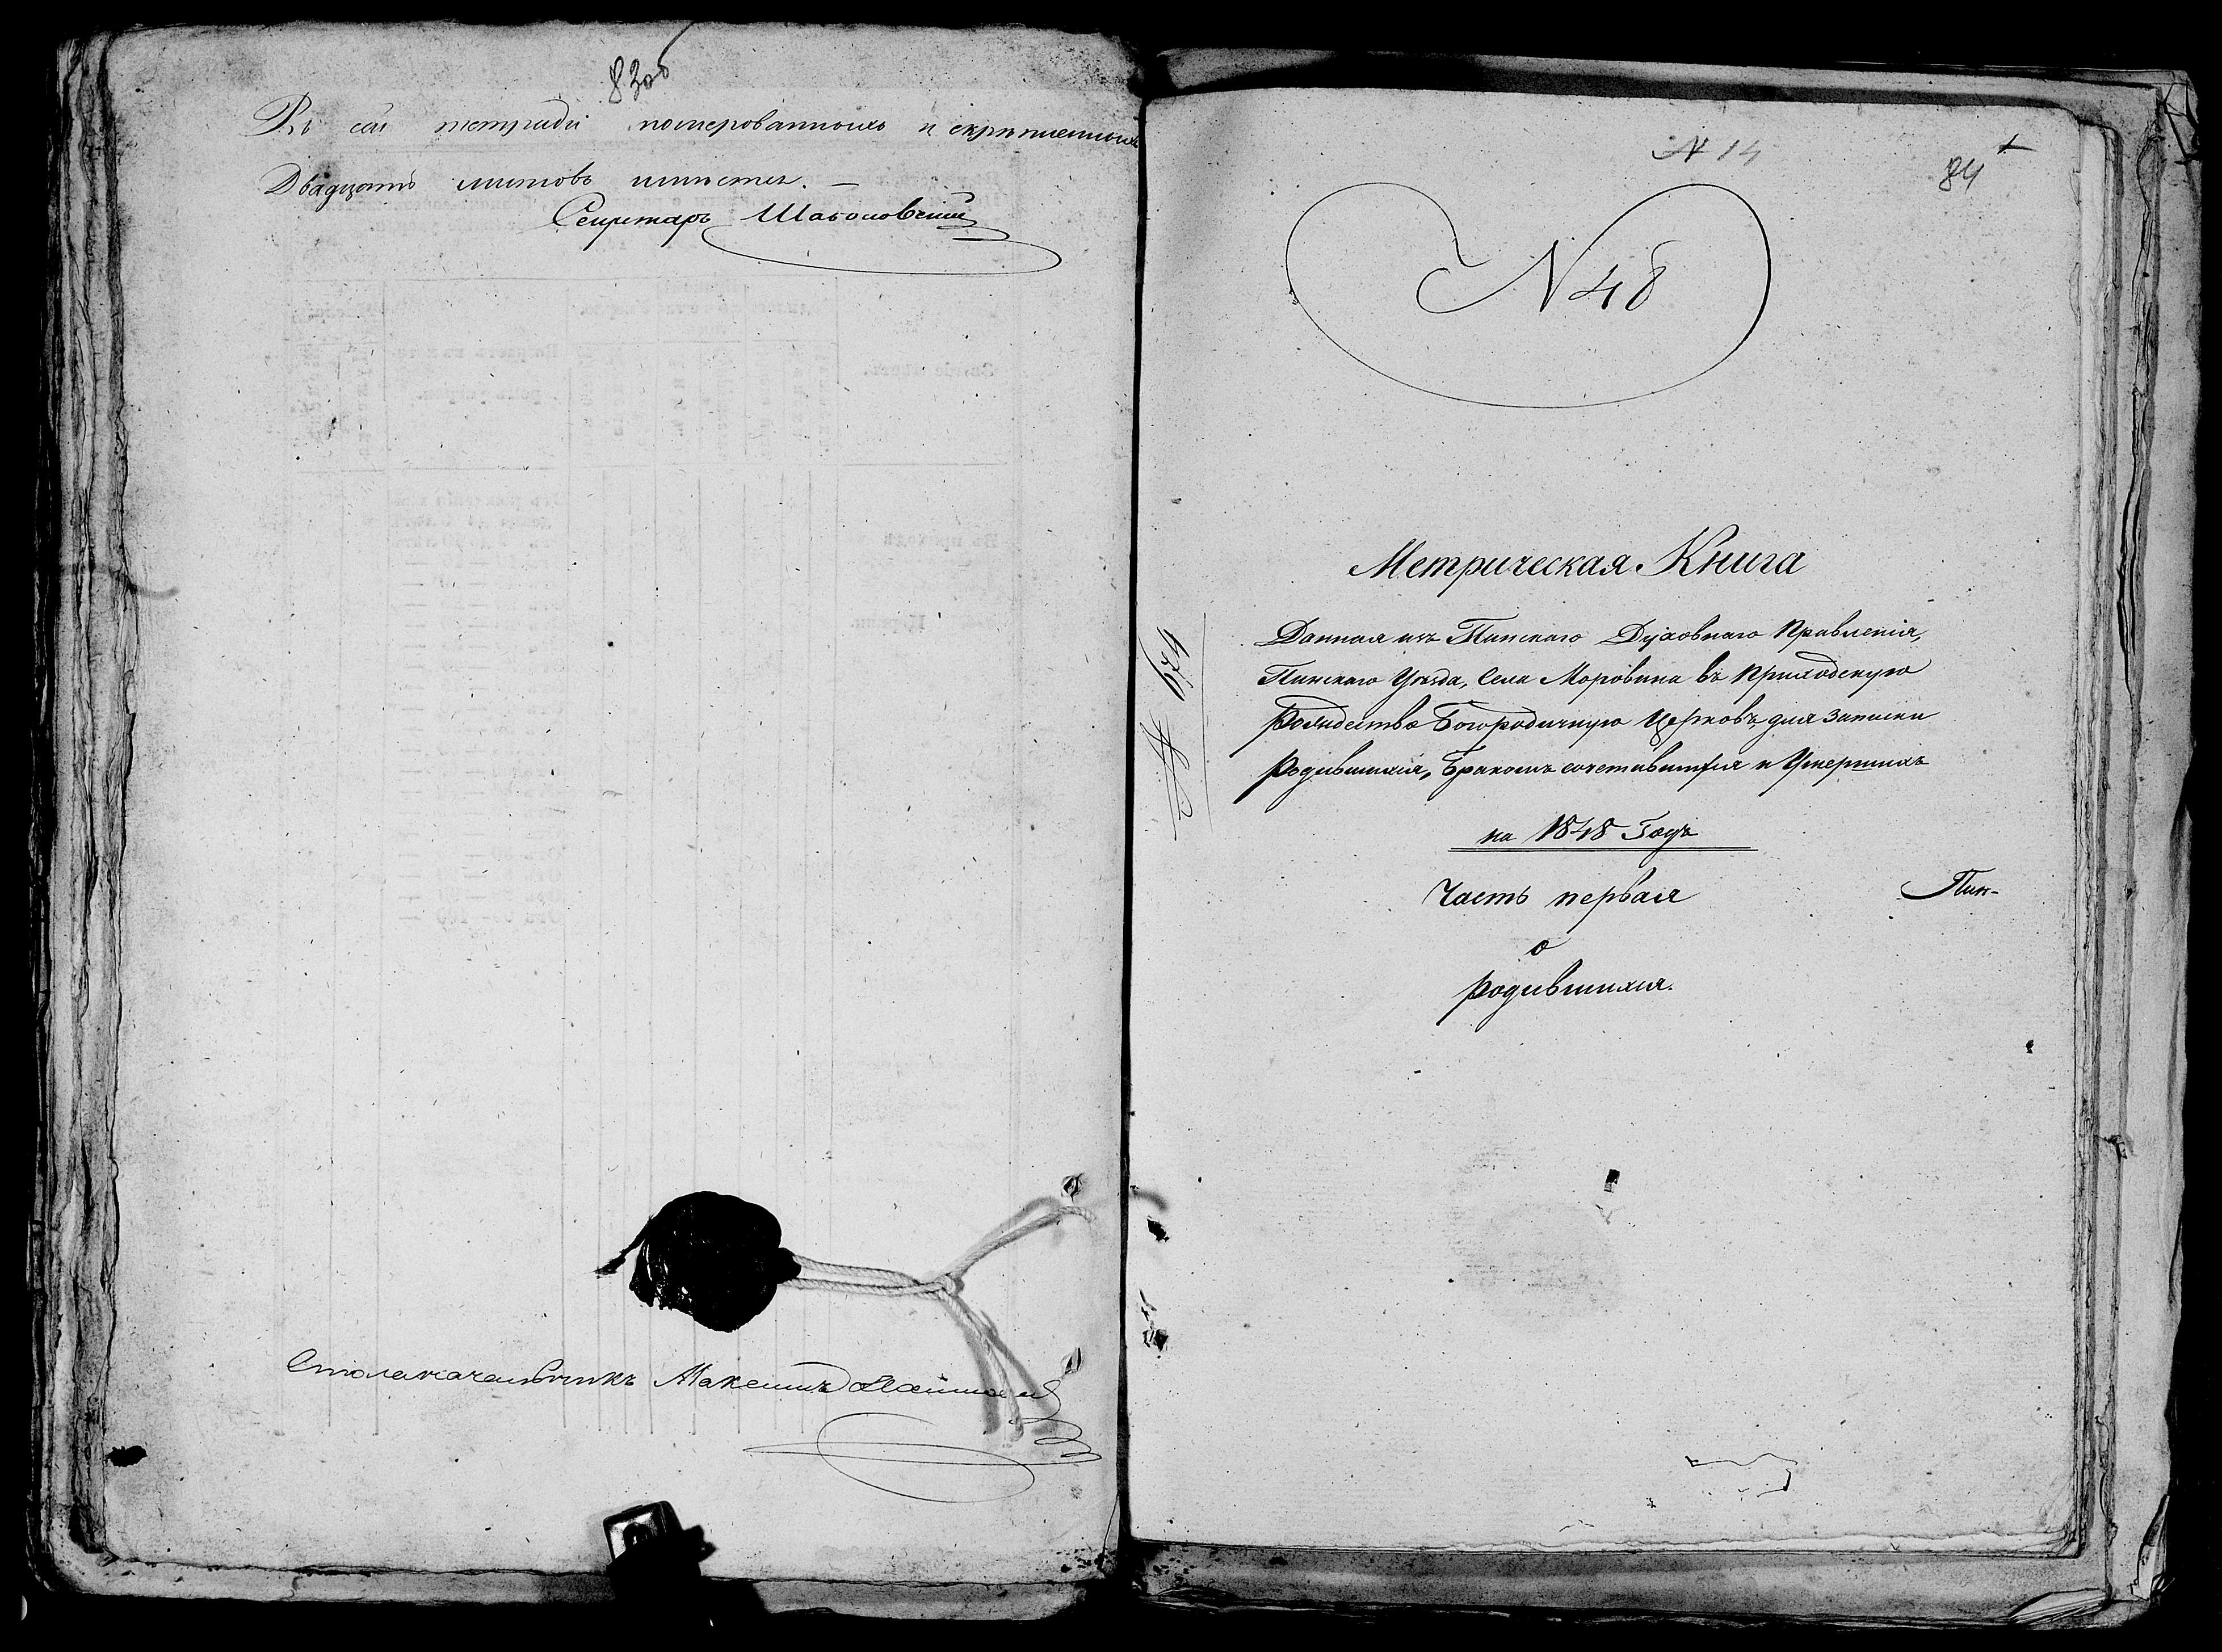 83об
Въ сей тетради номерованныхъ и скрѣпленныхъ
Двадцать листовъ имѣется. —
Секретарь
Столоначальникъ Максимъ
N 14
84
N 48
Метрическая Книга
Данная изъ Пинскаго Духовнаго Правленія,
Пинскаго Уѣзда, Села Моровина въ Приходскую
Рождество Богородичную Церковь, для записки
Родившихся, Бракомъ сочетавшихся и Умершихъ
на 1848 Годъ
Часть первая
Пин-
о
родившихся.